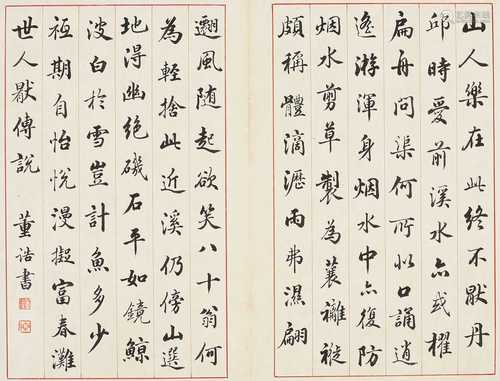 山人樂在此終不厭丹
邱時愛前溪水亦或櫂
扁舟問渠何所以口誦逍
遙游渾身烟水中亦復防
烟水剪草製為蓑襳褷
頗稱體滴瀝雨弗濕翩
翾風隨起欲笑八十翁何
為輕捨此近溪仍傍山選
地得幽絕磯石平如鏡鯨
波白於雪豈計魚多少
秖期自怡悅漫擬富春灘
世人獃傳說 董誥書